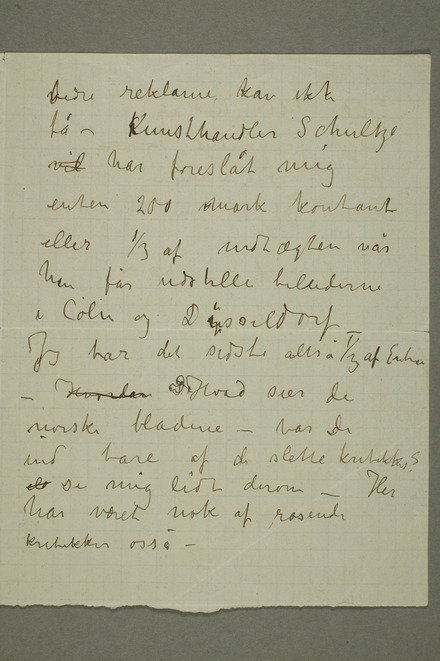 bedre reklame kan ikk
få – Kunsthandler Schultze
vil har foreslåt mig
enten 200 mark kontant
eller 1/3 af indtægten når
han får udstille billederne
i Cöln og Düsseldorf
Jeg har det sidste altså 1/3 af Entre
– Hvordan Hvad sier de
norske bladene – har De
ind bare af de slette kritikker?
si mig lidt derom – Her
har været nok af rosende
kritikker også –